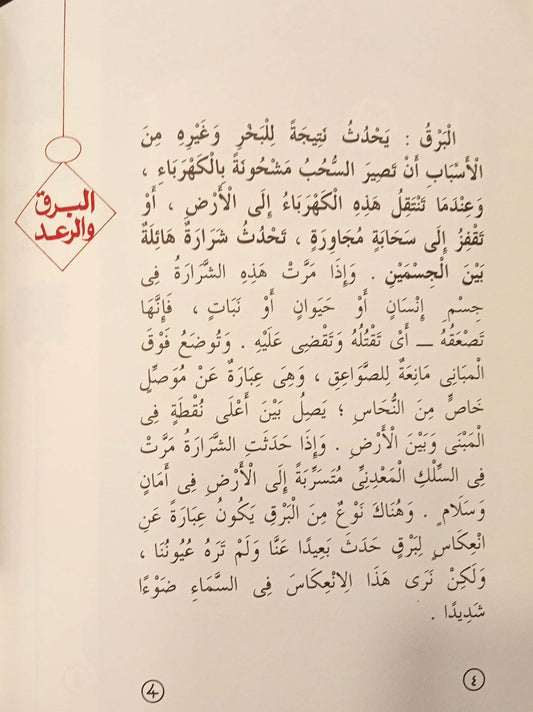 البرق
والرعد
الْبَرْقُ : يَحْدُثُ نَتِيجَةً لِلْبَخْرِ وَغَيْرِهِ مِنَ
الْأَسْبَابِ أَنْ تَصِيرَ السُّحُبُ مَشْحُونَةً بِالْكَهْرَبَاءِ ،
وَعِنْدَمَا تَنْتَقِلُ هَذِهِ الْكَهْرَبَاءُ إِلَى الْأَرْضِ ، أَوْ
تَقْفِزُ إِلَى سَحَابَةٍ مُجَاوِرَةٍ ، تَحْدُثُ شَرَارَةٌ هَائِلَةٌ
بَيْنَ الْجِسْمَيْنِ . وَإِذَا مَرَّتْ هَذِهِ الشَّرَارَةُ فِى
جِسْمِ إِنْسَانٍ أَوْ حَيَوَانٍ أَوْ نَبَاتٍ ، فَإِنَّهَا
تَصْعَقُهُ ـــ أَىْ تَقْتُلُهُ وَتَقْضِى عَلَيْهِ . وَتُوضَعُ فَوْقَ
الْمَبَانِى مَانِعَةٌ لِلصَّوَاعِقِ ، وَهِىَ عِبَارَةٌ عَنْ مُوَصِّلٍ
خَاصٍّ مِنَ النُّحَاسِ ؛ يَصِلُ بَيْنَ أَعْلَى نُقْطَةٍ فِى
الْمَبْنَى وَبَيْنَ الْأَرْضِ . وَإِذَا حَدَثَتِ الشَّرَارَةُ مَرَّتْ
فِى السِّلْكِ الْمَعْدِنِىِّ مُتَسَرِّبَةً إِلَى الْأَرْضِ فِى أَمَانٍ
وَسَلَامٍ . وَهُنَاكَ نَوْعٌ مِنَ الْبَرْقِ يَكُونُ عِبَارَةً عَنِ
انْعِكَاسٍ لِبَرْقٍ حَدَثَ بَعِيدًا عَنَّا وَلَمْ تَرَهُ عُيُونُنَا ،
وَلَكِنْ نَرَى هَذَا الِانْعِكَاسَ فِى السَّمَاءِ ضَوْءًا
شَدِيدًا .
٤
4